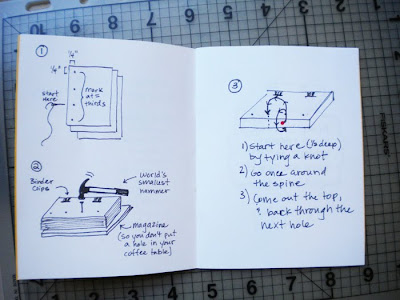 1
1/4"
1/4"
start
here
mark
at
thirds
2
Binder
Clips
world's
smallest
hammer
magazine
(so you don't put
a hole in your
coffee table)
3
1) start here (1/2 deep)
by tying a knot
2) Go once around
the spine
3) Come out the top,
& back through the
next hole